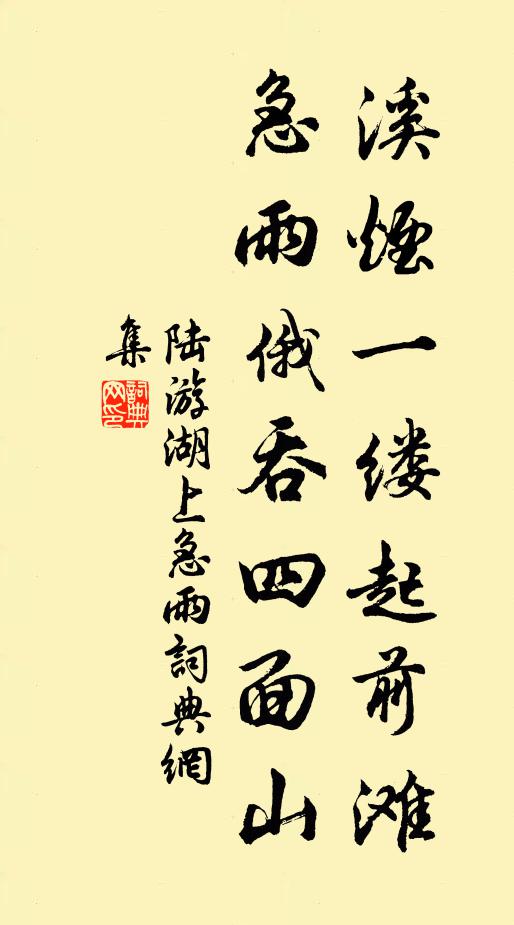 溪煙一缕起前滩
急雨俄吞四面山
陆游湖上急雨詞典網
集
詞典
网印